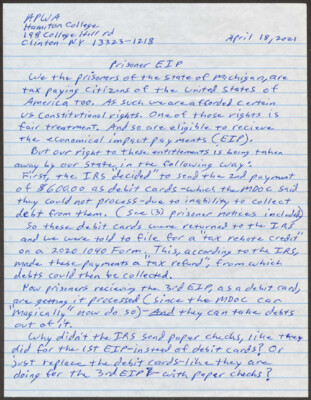 APWA
Hamilton College
198 College Hill rd
Clinton NY 13323-1218
April 18, 2021
Prisoner EIP
We the prisoners of the state of Michigan, are
tax paying Citizens of the United States of
America too. As such we are afforded certain
US Constitutional rights. One of those rights is
fair treatment. And so are eligible to recieve
the economical impact payments (EIP).
But our right to these entitlements is being taken
away by our State, in the following way:
First, the IRS decided to send the 2nd payment
of $600.00 as debit cards-which the MDOC said
they could not process-due to inability to collect
debt from them. (see (3) prisoner notices included)
So these debit cards were returned to the IRS
and we were told to file for a "tax rebate credit"
on a 2020 1040 Form. This, according to the IRS,
made these payments a "tax refund", from which
debts could then be collected.
Now prisoners recieving the 3rd EIP, as a debit card,
are getting it processed (since the MDOC can
"Magically" now do so) And they can take debts
out of it.
Why didn't the IRS send paper checks, like they
did for the 1st EIP-instead of debit cards? Or
just replace the debit cards-like they are
doing for the 3rd EIP - with paper checks?